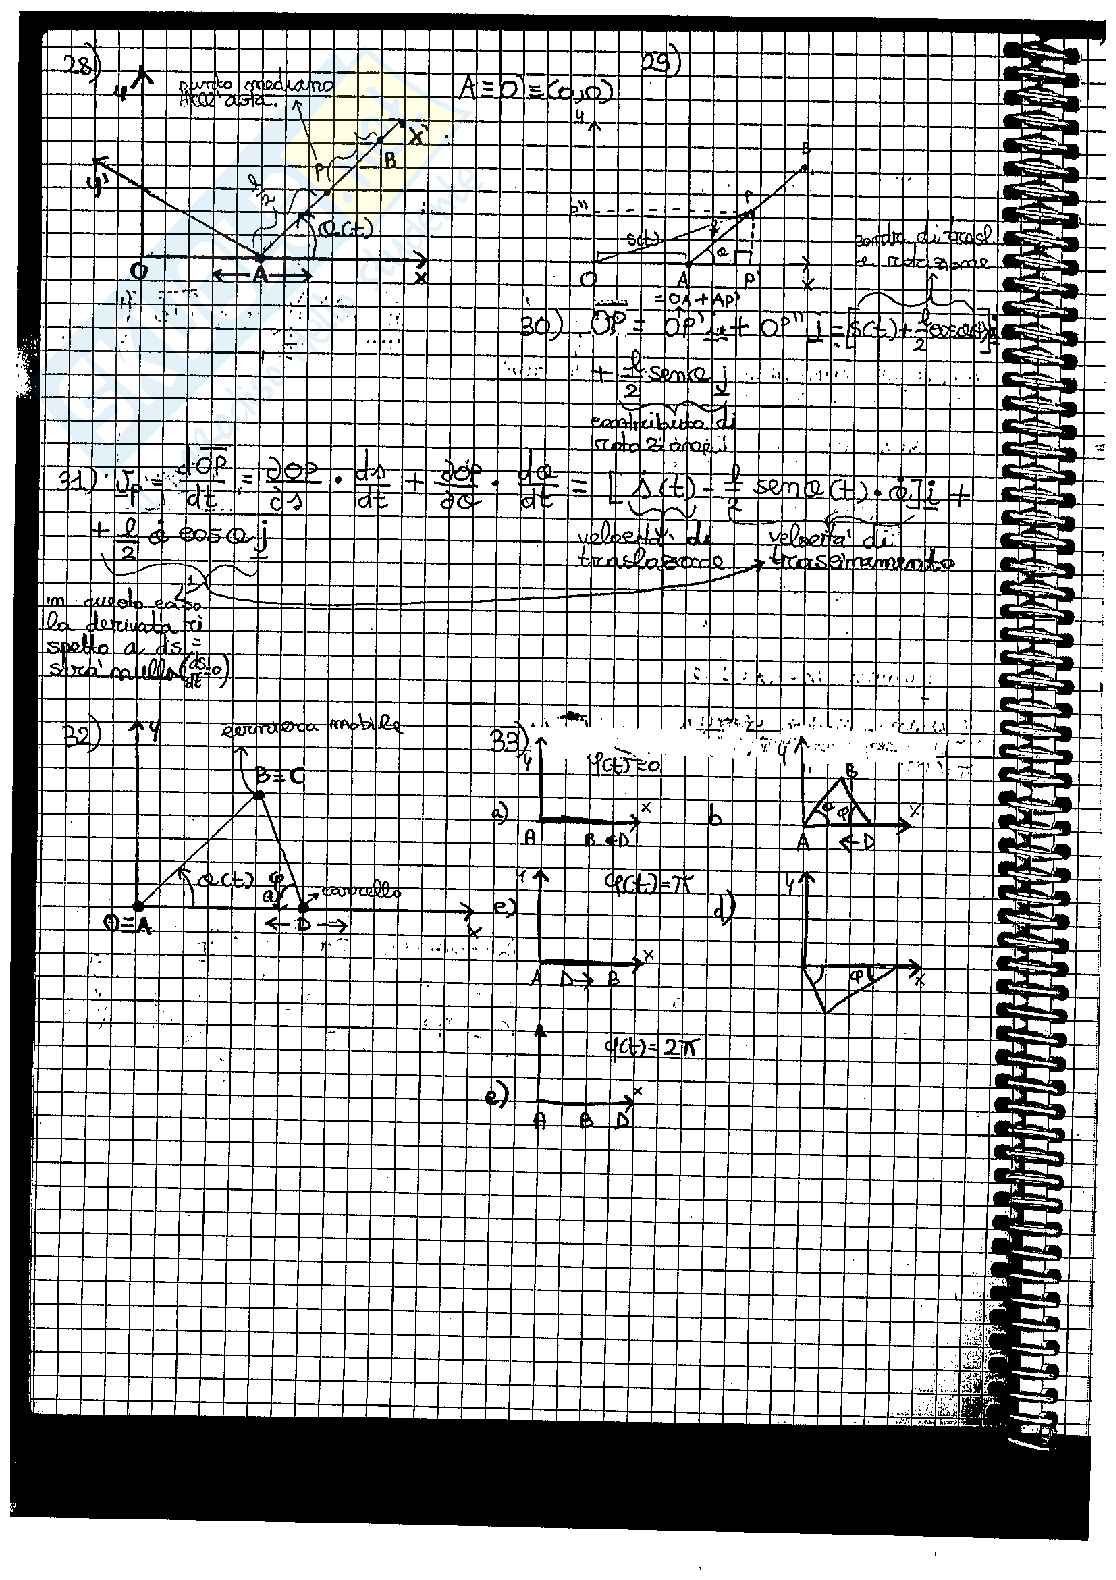 28)
y
punto mediano
dell'asta.
y'
l/2
P
B
x'
θ(t)
O
A
x
29)
A ≡ O ≡ (0,0)
y
B
P''
P
s(t)
θ
O
A
P'
x
contr. di trasl.
e rotazione
= OA + AP'
30) OP = OP' i + OP'' j = [s(t) + l/2 cosθ(t)] i
+ l/2 senθ j
contributo di
rotazione
31) v_P = dOP/dt = ∂OP/∂s · ds/dt + ∂OP/∂θ · dθ/dt = [ṡ(t) - l/2 senθ(t) · θ̇] i +
+ l/2 θ̇ cosθ j
velocità di
traslazione
velocità di
trascinamento
in questo caso
la derivata ri
spetto a ds
sarà nulla (ds/dt=0)
32)
y
cerniera mobile
B ≡ C
θ(t)
φ
carrello
O ≡ A
D
x
33)
a)
y
φ(t)=0
x
A
B
D
b
y
B
θ
φ
x
A
D
c)
y
φ(t)=π
x
A
D
B
d)
y
φ
x
e)
φ(t)=2π
x
A
B
D